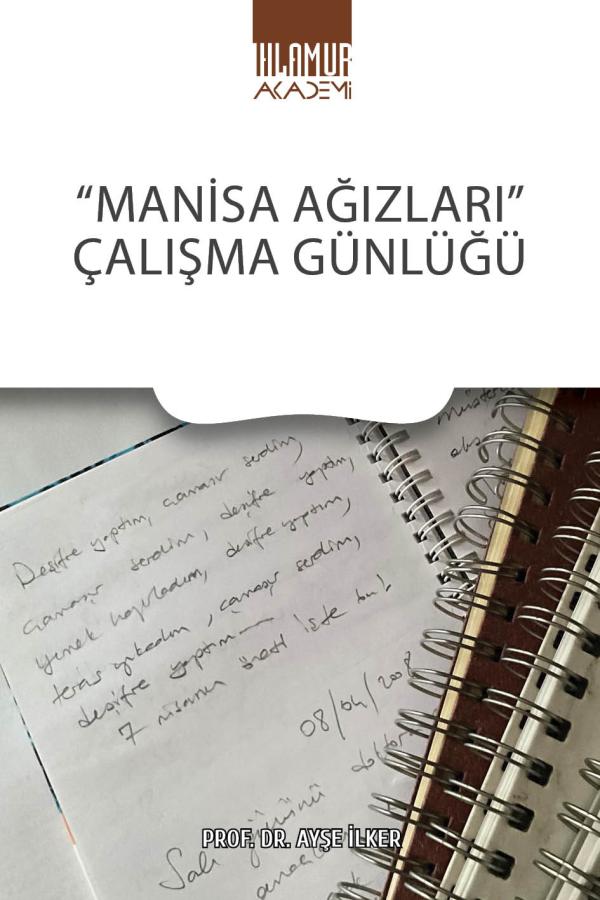 IHLAMUR
AKADEMİ
“MANİSA AĞIZLARI”
ÇALIŞMA GÜNLÜĞÜ
Deşifre yaptım, çamaşır serdim,
çamaşır serdim, deşifre yaptım,
yemek hazırladım, deşifre yaptım,
teras yıkadım, çamaşır serdim,
deşifre yaptım
7 nisanın özeti işte bu!
08/04/2008
Salı gününü
PROF. DR. AYŞE İLKER